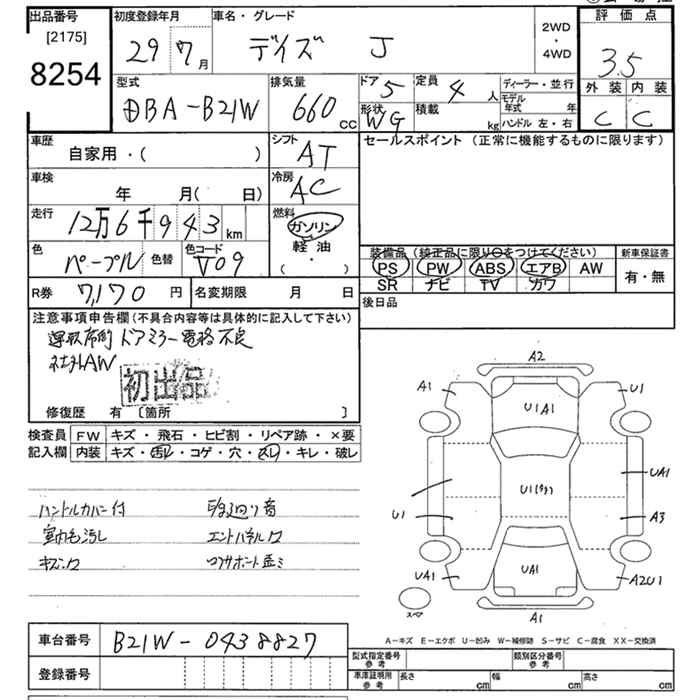 出品番号
[2175]
8254
初度登録年月
29年 7月
車名・グレード
デイズ J
2WD
・
4WD
評価点
3.5
型式
DBA-B21W
排気量
660 CC
ドア 5
形状 WG
定員 4 人
積載 kg
ディーラー・並行
モデル年式 年
ハンドル 左・右
外装 内装
C C
車歴
自家用・( )
シフト
AT
セールスポイント (正常に機能するものに限ります)
車検
年 月( 日)
冷房
AC
走行
12万6千943 km
燃料
ガソリン
軽油
( ・ )
色
パープル
色替
色コード
V09
装備品 (純正品に限り○をつけてください)
新車保証書
PS PW ABS エアB AW
SR ナビ TV カワ
有・無
R券 7,170 円
名変期限 月 日
後日品
注意事項申告欄(不具合内容等は具体的に記入して下さい)
運転席側 ドアミラー電格不良
社外AW
初出品
修復歴 有 〔箇所 〕
検査員
記入欄
FW キズ・飛石・ヒビ割・リペア跡・×要
内装 キズ・汚レ・コゲ・穴・スレ・キレ・破レ
ハンドルカバー付
室内毛汚し
エンドパネルワ
コアサポート歪ミ
A2
A1
U1
U1A1
UA1
U1
A3
UA1
UA1
A2U1
A1
スペア
A-キズ E-エクボ U-凹み W-補修跡 S-サビ C-腐食 XX-交換済
車台番号 B21W-0438827
登録番号
型式指定番号 参考
類別区分番号 参考
車庫証明用 参考
長さ cm
幅 cm
高さ cm